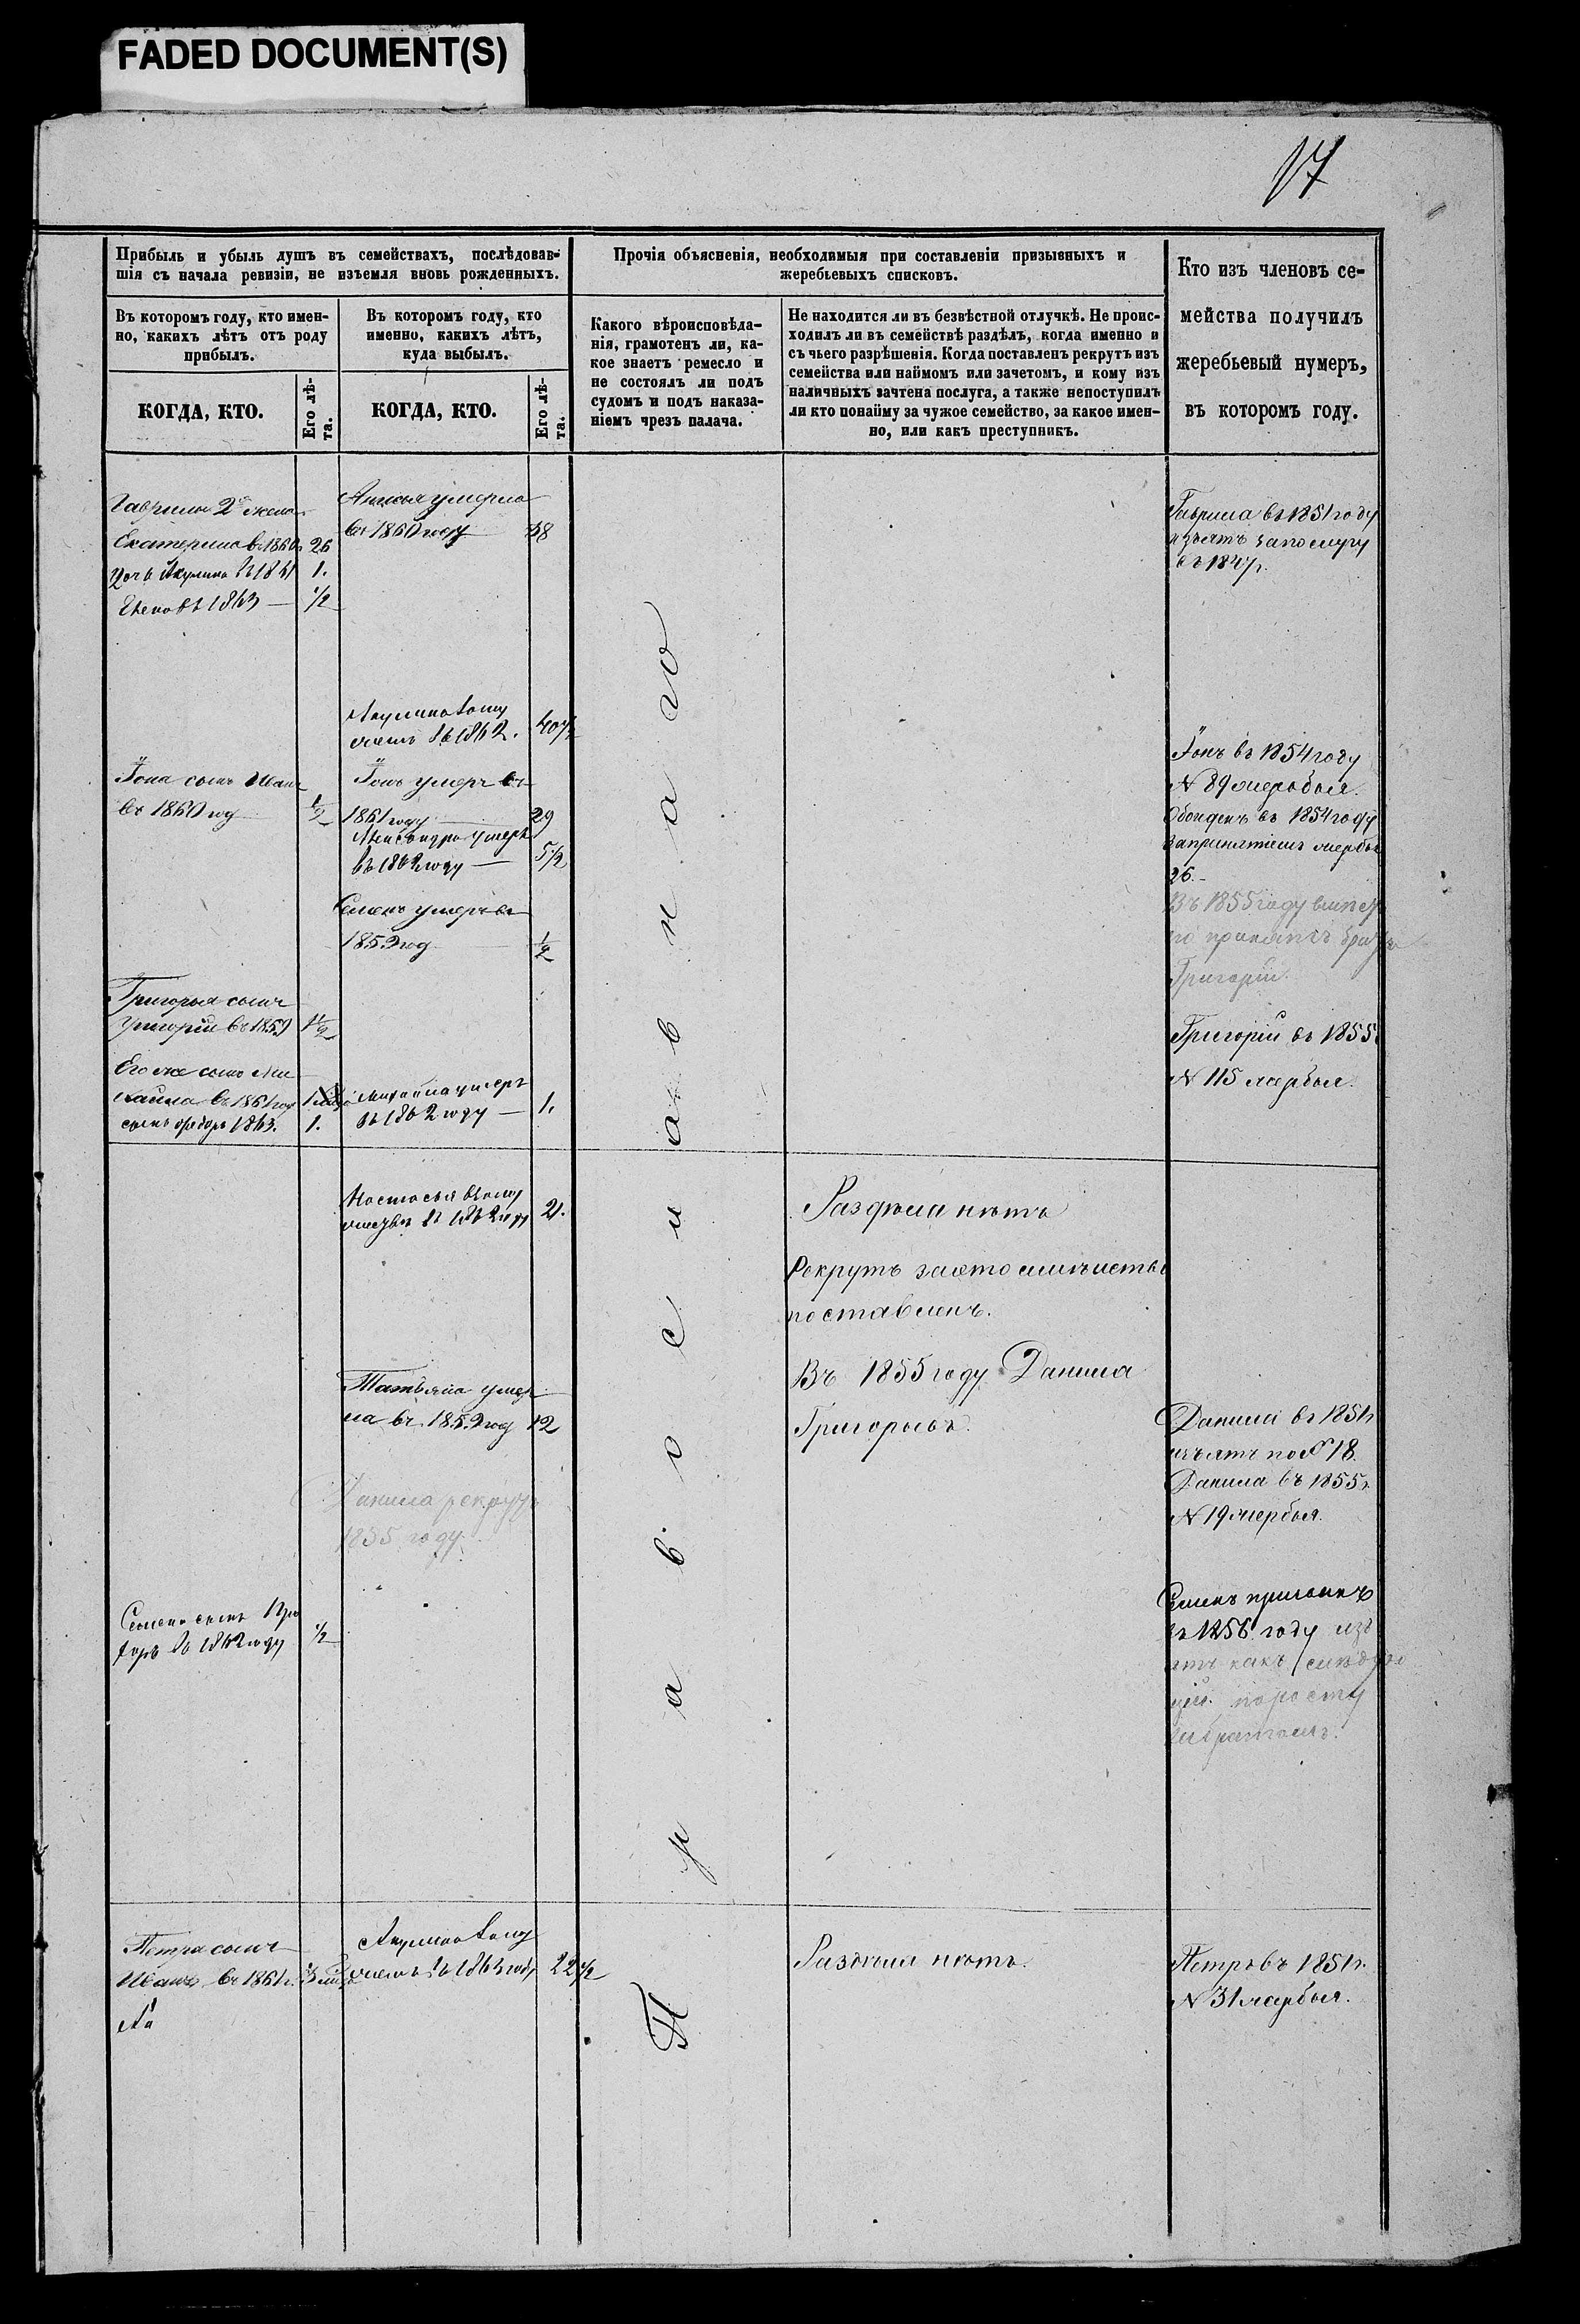 FADED DOCUMENT(S)
17
Прибыль и убыль душъ въ семействахъ, послѣдовав-
шія съ начала ревизіи, не изъемля вновь рожденныхъ.
Въ которомъ году, кто имен-
но, какихъ лѣтъ отъ роду
прибылъ.
КОГДА, КТО.
Его лѣ-
та.
Въ которомъ году, кто
именно, какихъ лѣтъ,
куда выбылъ.
КОГДА, КТО.
Его лѣ-
та.
Прочія объясненія, необходимыя при составленіи призывныхъ и
жеребьевыхъ списковъ.
Какого вѣроисповѣда-
нія, грамотенъ ли, ка-
кое знаетъ ремесло и
не состоялъ ли подъ
судомъ и подъ наказа-
ніемъ чрезъ палача.
Не находится ли въ безвѣстной отлучкѣ. Не проис-
ходилъ ли въ семействѣ раздѣлъ, когда именно и
съ чьего разрѣшенія. Когда поставленъ рекрутъ изъ
семейства или наймомъ или зачетомъ, и кому изъ
наличныхъ зачтена послуга, а также непоступилъ
ли кто понайму за чужое семейство, за какое имен-
но, или какъ преступникъ.
Кто изъ членовъ се-
мейства получилъ
жеребьевый нумеръ,
въ которомъ году.
Гаврилы 2я жена
Екатерина въ 1860 26
дочь Акулина въ 1861 1.
Елена въ 1863 — 1/2
Анисья умерла
въ 1860 году 48
Гаврила въ 1851 году
изъятъ за послугу
въ 1847г.
Акулина
въ 1862. 40 1/2
Іона сынъ Иванъ
въ 1860 год 1/2
Іонъ умеръ въ
1861 году 29
Александра умерла
въ 1862 году — 5 1/2
Семенъ умеръ въ
1859 год 1/2
Іонъ въ 1854 году
№ 89 жеребья.
Обойденъ въ 1854 году
запринятіемъ жеребья
26.
Въ 1855 году
принятъ братъ
Григорій.
Григорья сынъ
Григорій въ 1859 1 1/2
Его же сынъ Ми
хайла въ 1861 год
сынъ Федоръ 1863. 1.
Михайла умеръ
въ 1862 году — 1.
Григорій въ 1855
№ 115 жеребья.
Православнаго
Настасья
въ 1862 году 21.
Раздѣла нѣтъ
Рекрутъ за это семейство
поставленъ.
Въ 1855 году Данила
Григорьевъ.
Татьяна умер
ла въ 1859 год 12
Данила рекрутъ
1855 году.
Данила въ 1851г
изъятъ по № 18.
Данила въ 1855г.
№ 19 жеребья.
Семена сынъ Про
хоръ въ 1862 году 1/2
Семенъ
въ 1856 году изъ
ятъ какъ слѣдую
щій по росту
за братомъ.
Петра сынъ
Иванъ въ 1861г.
Акулина
въ 1863 году 22 1/2
Раздѣла нѣтъ.
Петръ въ 1851г.
№ 31 жеребья.